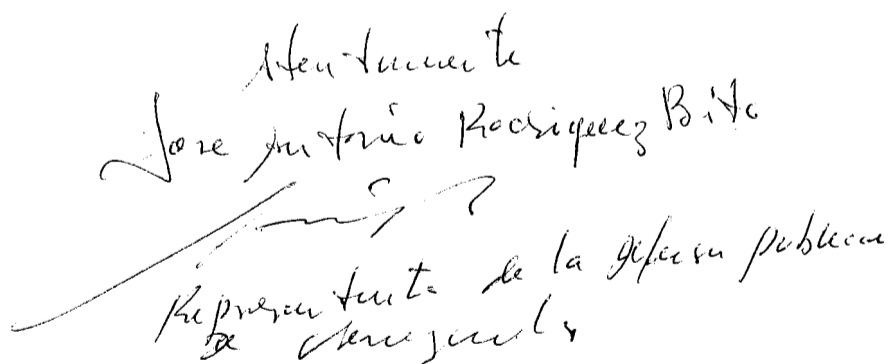 Atentamente
Jose Antonio Rodriguez Bito
Representante de la defensa publica
de Venezuela